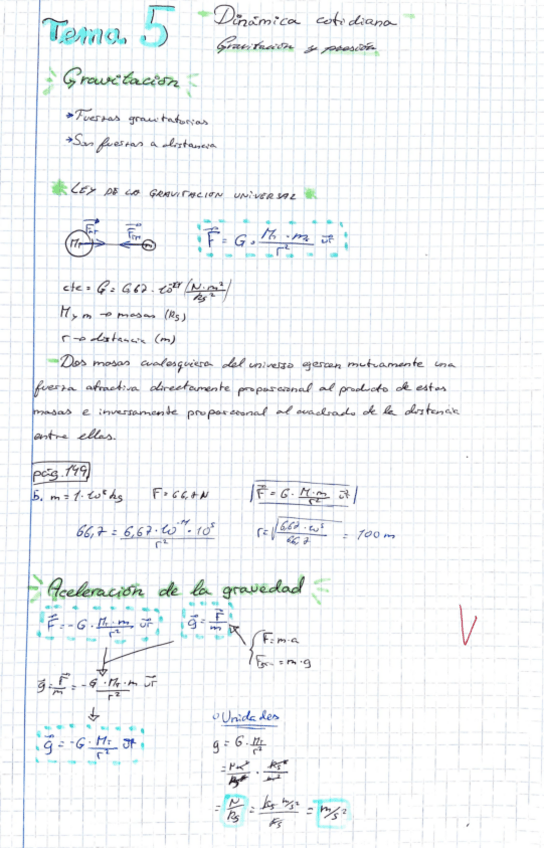 Tema 5
Dinámica cotidiana
Gravitación y presión
Gravitación
→ Fuerzas gravitatorias
→ Son fuerzas a distancia
* LEY DE LA GRAVITACION UNIVERSAL *
F = G · M · m / r² ur
cte = G = 6,67 · 10⁻¹¹ (N·m²/kg²)
M y m → masas (kg)
r → distancia (m)
– Dos masas cualesquiera del universo ejercen mutuamente una
fuerza atractiva directamente proporcional al producto de estas
masas e inversamente proporcional al cuadrado de la distancia
entre ellas.
pág. 149
F = 66,7 N
F = G · M·m / r² ur
r = = 100 m
Aceleración de la gravedad
F = -G · MT · m / r² ur
g = F / m
F = m·a
= m·g
g = F / m = -G · MT · m / r² ur
g = -G · MT / r² ur
Unidades
g = G · MT / r²
= N / kg = kg m/s² / kg = m/s²